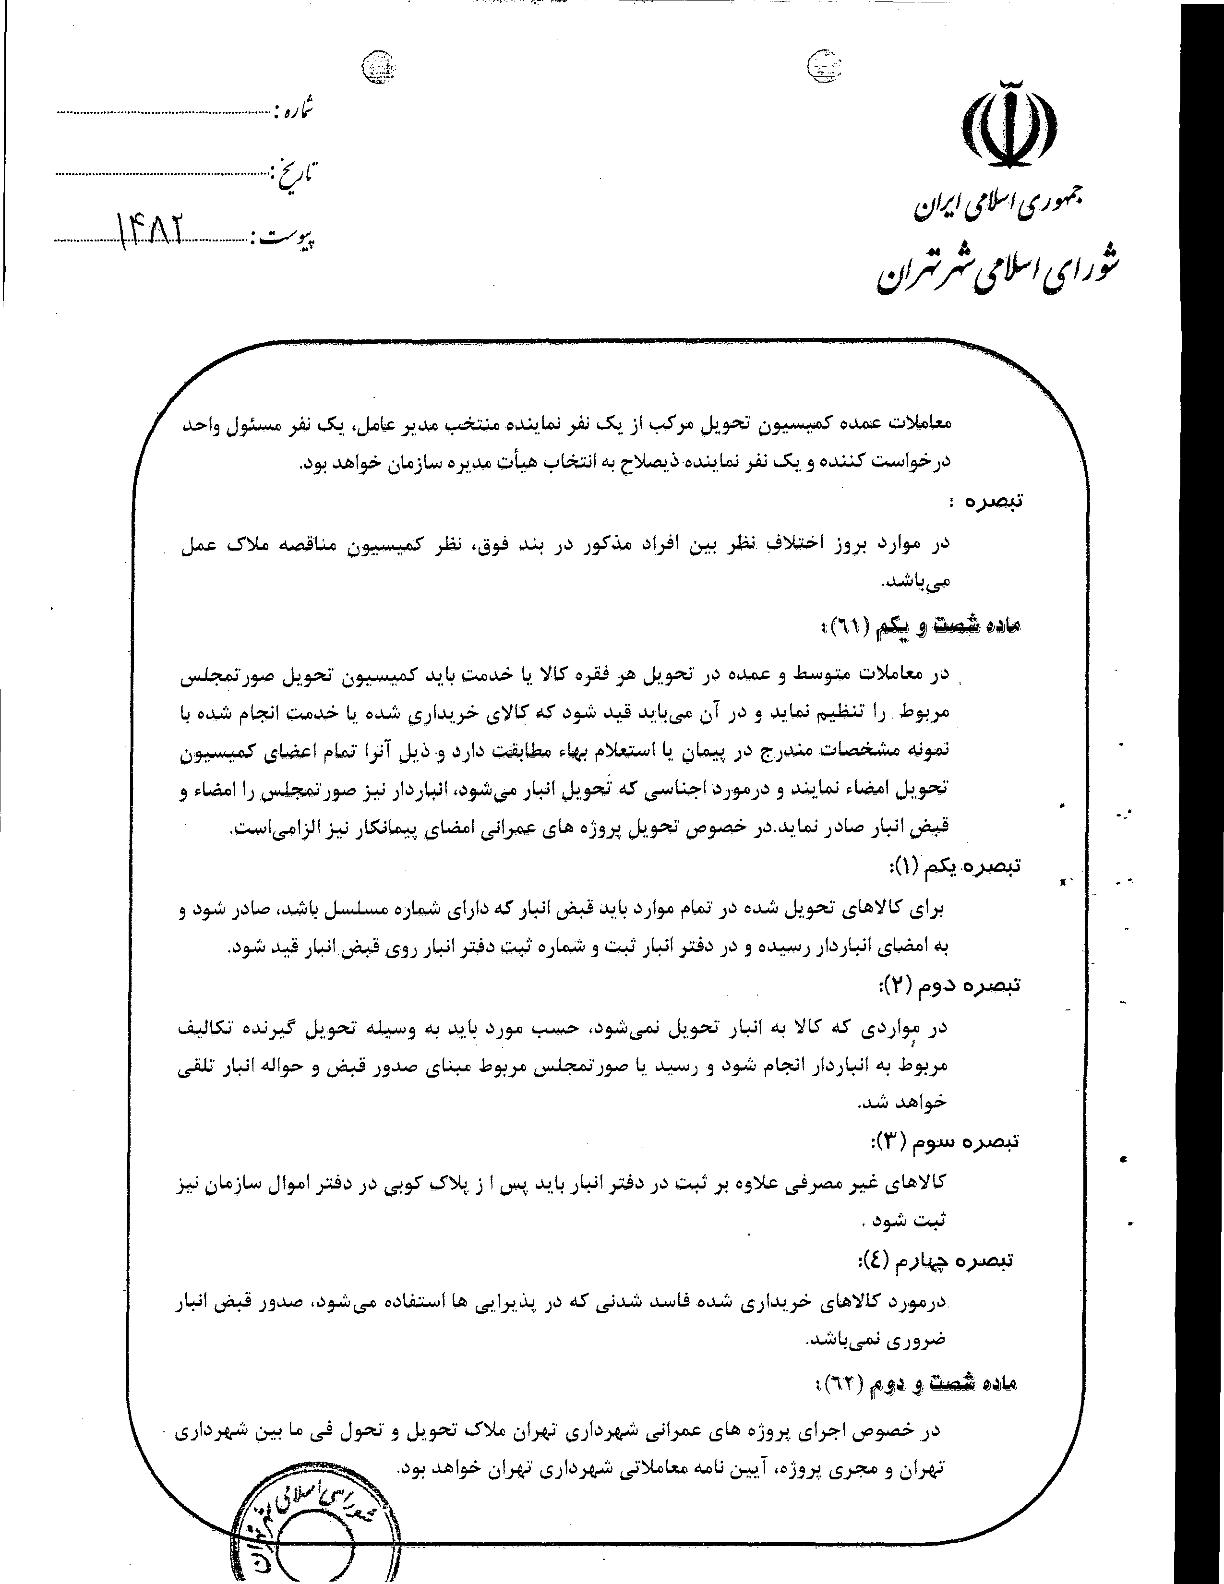 جمهوری اسلامی ایران
شورای اسلامی شهر تهران
شماره :
تاریخ :
پیوست : ۱۴۸۲
معاملات عمده کمیسیون تحویل مرکب از یک نفر نماینده منتخب مدیر عامل، یک نفر مسئول واحد
درخواست کننده و یک نفر نماینده ذیصلاح به انتخاب هیأت مدیره سازمان خواهد بود.
تبصره :
در موارد بروز اختلاف نظر بین افراد مذکور در بند فوق، نظر کمیسیون مناقصه ملاک عمل
می‌باشد.
ماده شصت و یکم (٦١):
در معاملات متوسط و عمده در تحویل هر فقره کالا یا خدمت باید کمیسیون تحویل صورتمجلس
مربوط را تنظیم نماید و در آن می‌باید قید شود که کالای خریداری شده یا خدمت انجام شده با
نمونه مشخصات مندرج در پیمان یا استعلام بهاء مطابقت دارد و ذیل آنرا تمام اعضای کمیسیون
تحویل امضاء نمایند و درمورد اجناسی که تحویل انبار می‌شود، انباردار نیز صورتمجلس را امضاء و
قبض انبار صادر نماید.در خصوص تحویل پروژه های عمرانی امضای پیمانکار نیز الزامی‌است.
تبصره یکم (١):
برای کالاهای تحویل شده در تمام موارد باید قبض انبار که دارای شماره مسلسل باشد، صادر شود و
به امضای انباردار رسیده و در دفتر انبار ثبت و شماره ثبت دفتر انبار روی قبض انبار قید شود.
تبصره دوم (٢):
در مواردی که کالا به انبار تحویل نمی‌شود، حسب مورد باید به وسیله تحویل گیرنده تکالیف
مربوط به انباردار انجام شود و رسید یا صورتمجلس مربوط مبنای صدور قبض و حواله انبار تلقی
خواهد شد.
تبصره سوم (٣):
کالاهای غیر مصرفی علاوه بر ثبت در دفتر انبار باید پس ا ز پلاک کوبی در دفتر اموال سازمان نیز
ثبت شود .
تبصره چهارم (٤):
درمورد کالاهای خریداری شده فاسد شدنی که در پذیرایی ها استفاده می‌شود، صدور قبض انبار
ضروری نمی‌باشد.
ماده شصت و دوم (٦٢):
در خصوص اجرای پروژه های عمرانی شهرداری تهران ملاک تحویل و تحول فی ما بین شهرداری
تهران و مجری پروژه، آیین نامه معاملاتی شهرداری تهران خواهد بود.
شورای اسلامی شهر تهران